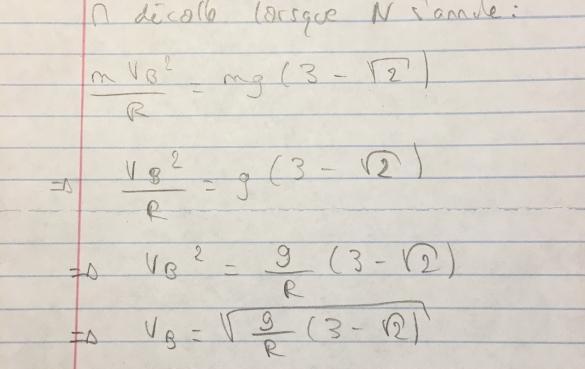 ∩ décolle lorsque N s'annule :
m V_B² / R = mg (3 - √2)
⇒ V_B² / R = g (3 - √2)
⇒ V_B² = g/R (3 - √2)
⇒ V_B = √(g/R (3 - √2))